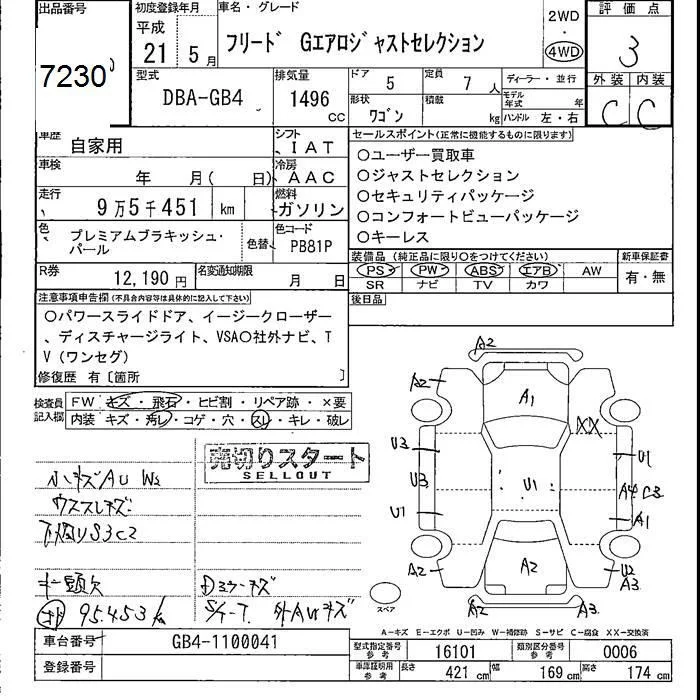 出品番号
7230
初度登録年月
平成
21 5月
車名・グレード
フリード Gエアロジャストセレクション
2WD
4WD
評価点
3
外装 内装
C C
型式
DBA-GB4
排気量
1496 cc
ドア 5
定員 7人
形状 ワゴン
積載 kg
ディーラー・並行
モデル年式 年
ハンドル 左・右
車歴 自家用
シフト IAT
車検 年 月( 日)
冷房 AAC
走行 9万5千451 km
燃料 ガソリン
色 プレミアムブラキッシュ・パール
色替
色コード PB81P
R券 12,190円
名変通知期限 月 日
セールスポイント(正常に機能するものに限ります)
○ユーザー買取車
○ジャストセレクション
○セキュリティパッケージ
○コンフォートビューパッケージ
○キーレス
装備品 (純正品に限り○をつけてください)
新車保証書
PS PW ABS エアB AW
SR ナビ TV カワ
有・無
後日品
注意事項申告欄(不具合内容等は具体的に記入して下さい)
○パワースライドドア、イージークローザー
、ディスチャージライト、VSA○社外ナビ、T
V(ワンセグ)
修復歴 有〔箇所 〕
検査員記入欄
FW キズ・飛石・ヒビ割・リペア跡・×要
内装 キズ・汚レ・コゲ・穴・スレ・キレ・破レ
売切りスタート
SELLOUT
小キズAU W2
ウススレキズ
下廻りS3C2
キー頭欠
95.453k
Dミラーキズ
外AUキズ
A2
A2
A1
XX
U3
U1
U3
U1
A4 C3
U1
A1
A2
A2
U2
A3
A2
A3
スペア
A-キズ E-エクボ U-凹み W-補修跡 S-サビ C-腐食 XX-交換済
車台番号 GB4-1100041
登録番号
型式指定番号 参考 16101
類別区分番号 参考 0006
車庫証明用 参考
長さ 421 cm
幅 169 cm
高さ 174 cm